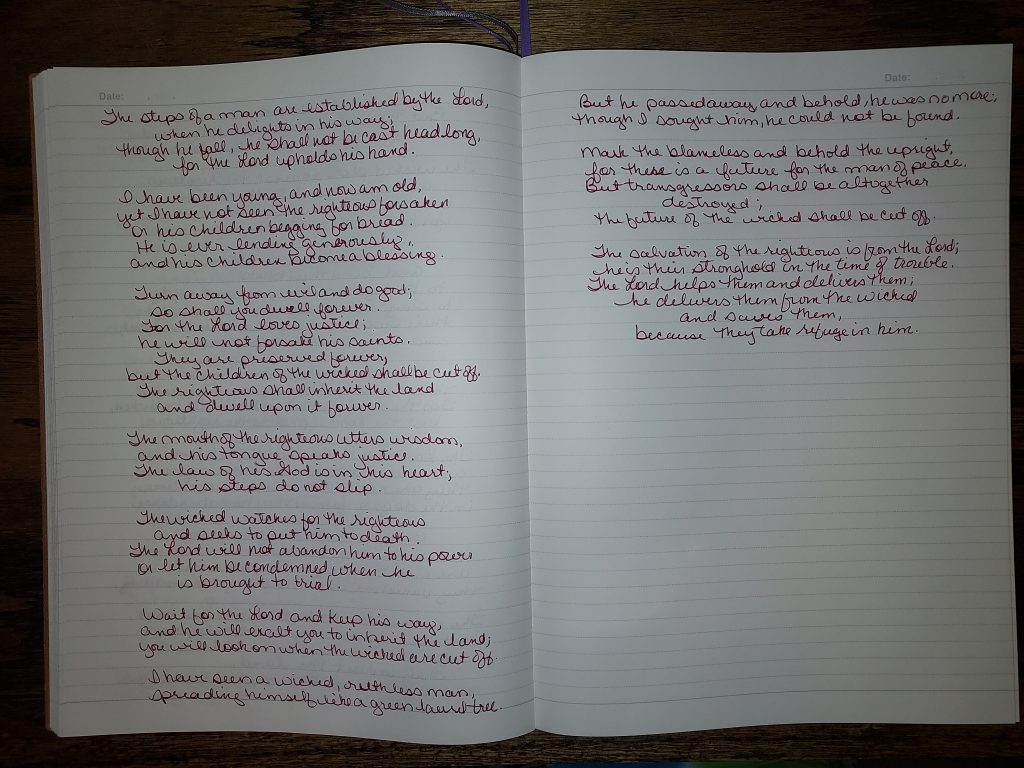 Date:
The steps of a man are established by the Lord,
when he delights in his way;
though he fall, he shall not be cast headlong,
for the Lord upholds his hand.
I have been young, and now am old,
yet I have not seen the righteous forsaken
or his children begging for bread.
He is ever lending generously,
and his children become a blessing.
Turn away from evil and do good;
so shall you dwell forever.
For the Lord loves justice;
he will not forsake his saints.
They are preserved forever,
but the children of the wicked shall be cut off.
The righteous shall inherit the land
and dwell upon it forever.
The mouth of the righteous utters wisdom,
and his tongue speaks justice.
The law of his God is in his heart;
his steps do not slip.
The wicked watches for the righteous
and seeks to put him to death.
The Lord will not abandon him to his power
or let him be condemned when he
is brought to trial.
Wait for the Lord and keep his way,
and he will exalt you to inherit the land;
you will look on when the wicked are cut off.
I have seen a wicked, ruthless man,
spreading himself like a green laurel tree.
Date:
But he passed away, and behold, he was no more;
though I sought him, he could not be found.
Mark the blameless and behold the upright,
for there is a future for the man of peace.
But transgressors shall be altogether
destroyed;
the future of the wicked shall be cut off.
The salvation of the righteous is from the Lord;
he is their stronghold in the time of trouble.
The Lord helps them and delivers them;
he delivers them from the wicked
and saves them,
because they take refuge in him.